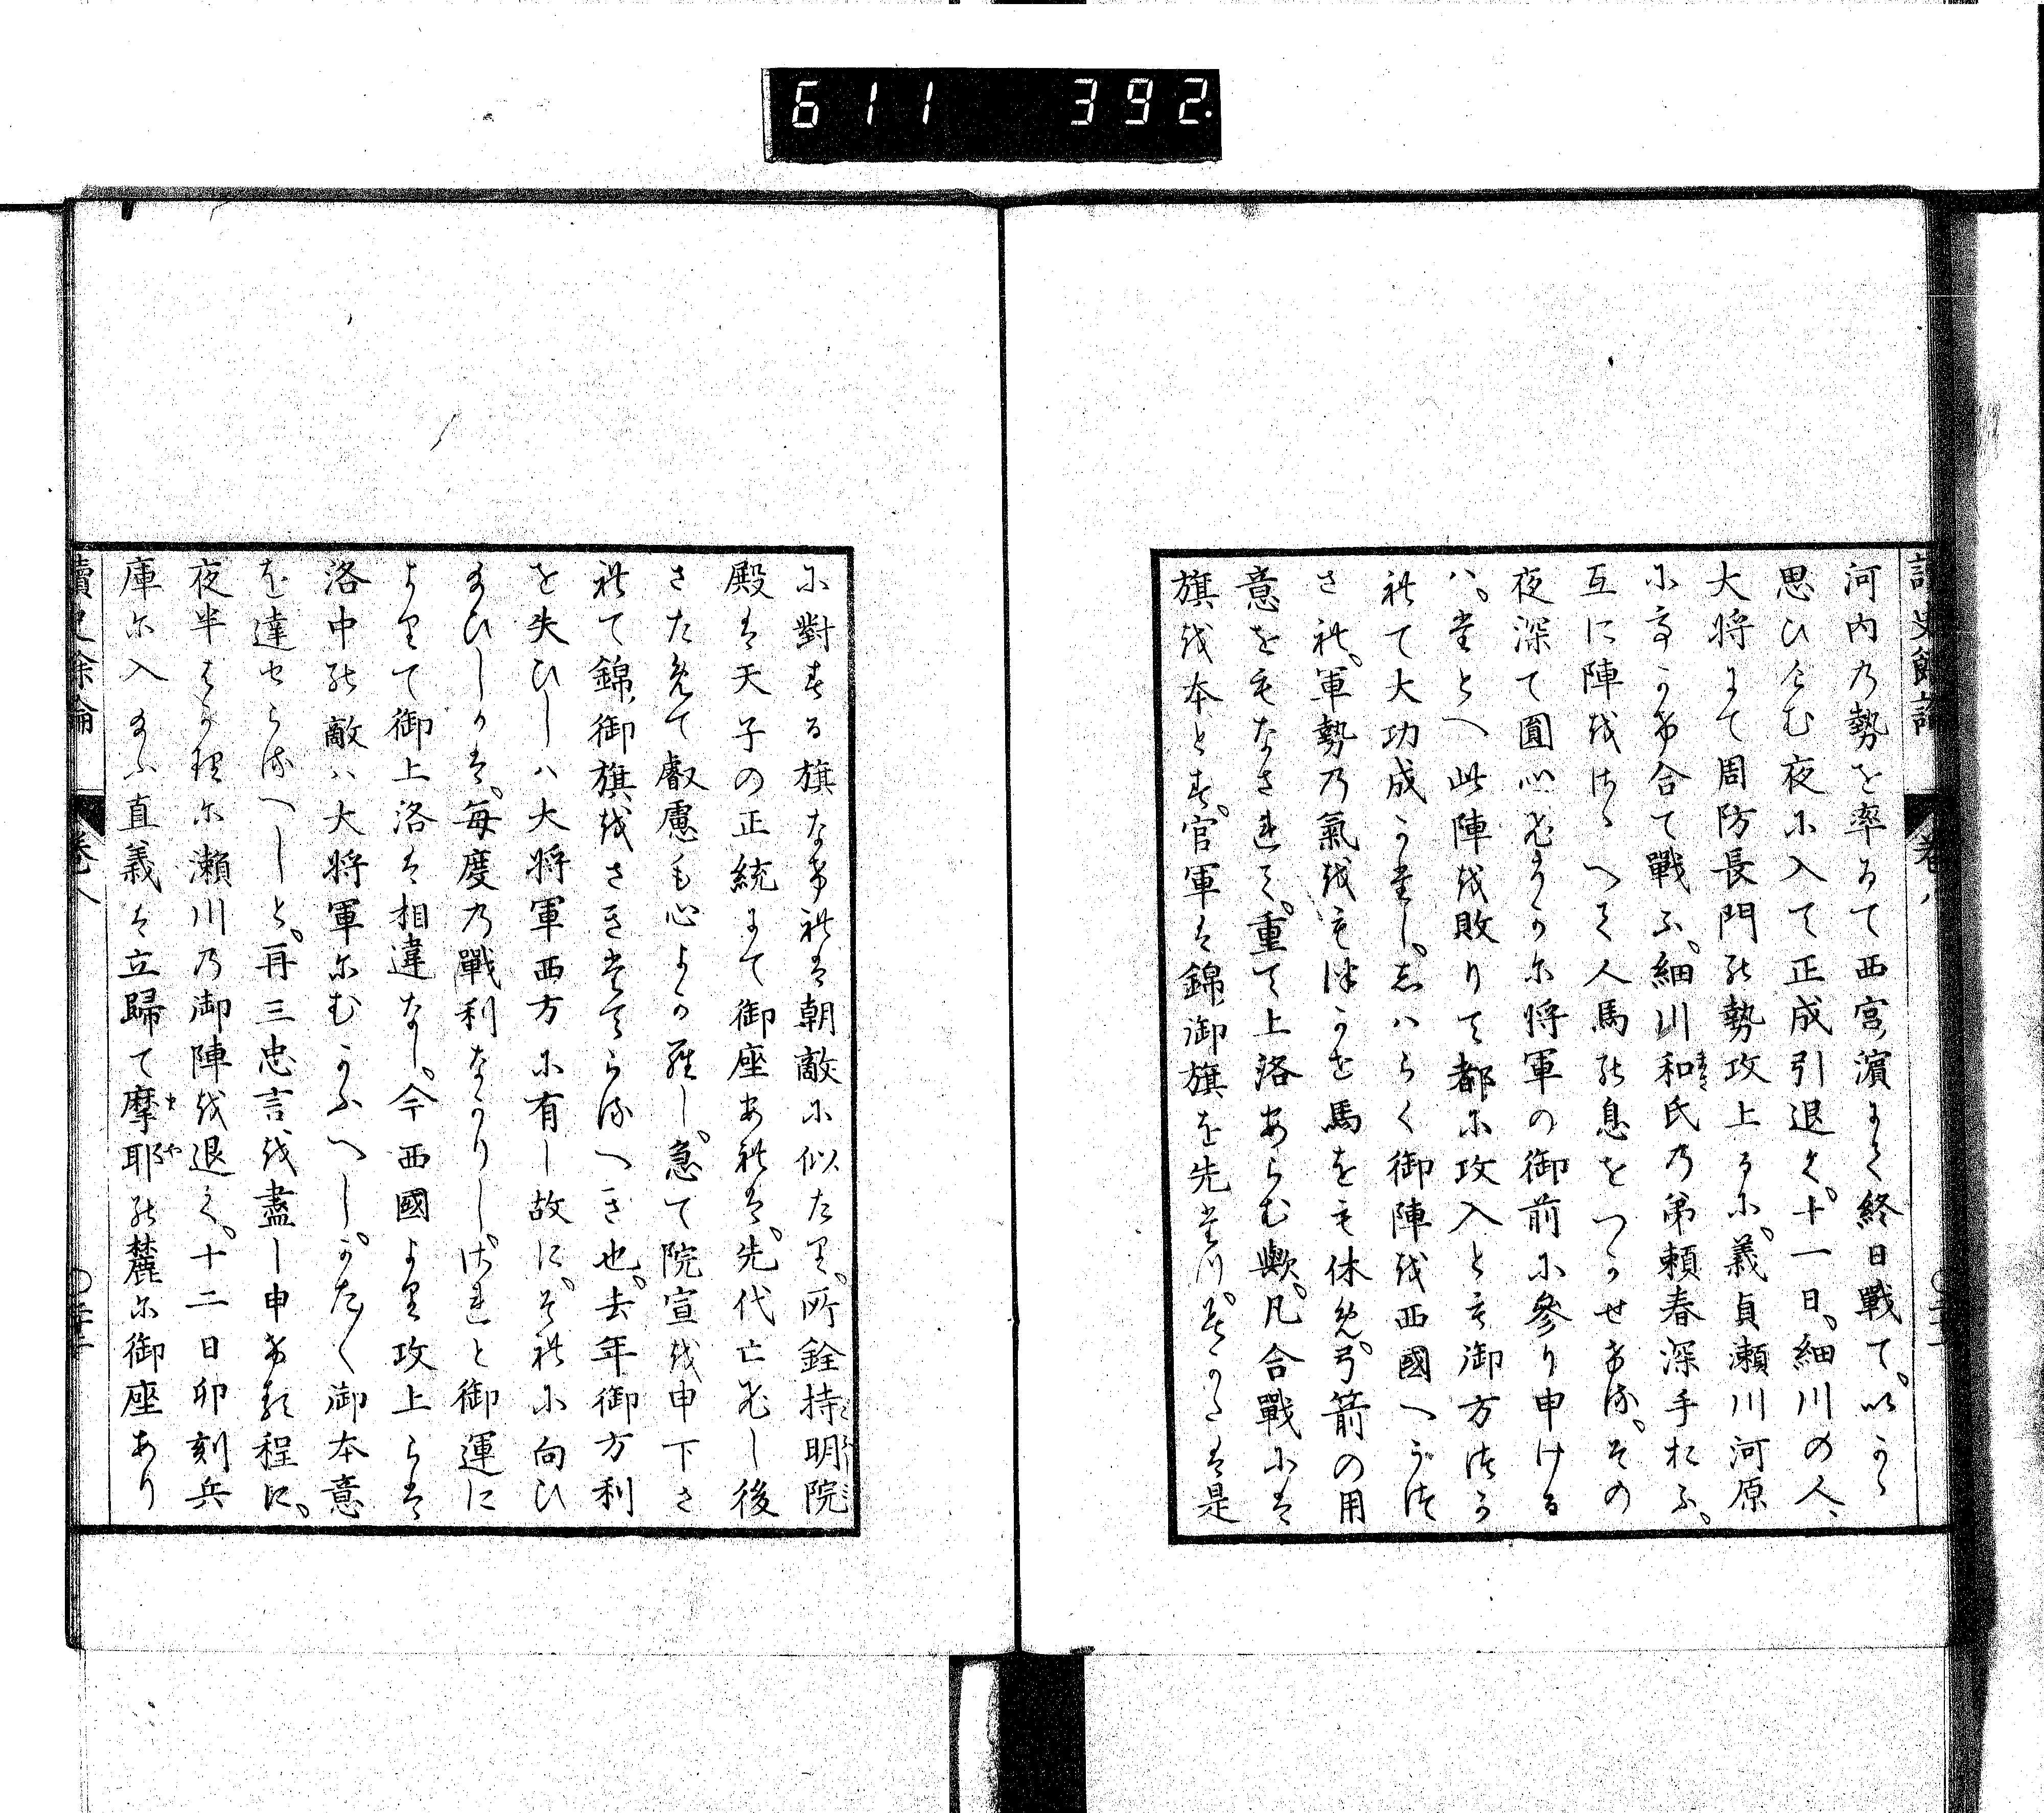 611 392.
讀史餘論 卷八
河内乃勢を率ゐて西宮濱にて終日戰て。いかゝ
思ひけむ夜に入て正成引退く。十一日。細川の人、
大将にて周防長門の勢攻上るに。義貞瀬川河原
に行あひ合て戰ふ。細川和氏乃弟頼春深手おふ。
互に陣をはりへて人馬の息をつかせける。その
夜深て圓心ひそかに将軍の御前に參り申ける
ハ。たとへ此陣を敗りて都に攻入とも御方つか
れて大功成かたし。しハらく御陣を西國へうつ
され。軍勢乃氣をもつかせ馬をも休め。弓箭の用
意をもなされて。重て上洛あらむ歟。凡合戰には
旗を本とす。官軍は錦御旗を先たつ。我かたは是
に對する旗なければ朝敵に似たり。所詮持明院
殿は天子の正統にて御座あれは。先代亡ひし後
さためて叡慮も心よからし。急て院宣を申下さ
れて錦御旗をさきたてらるへき也。去年御方利
を失ひしハ大将軍西方に有し故に。それに向ひ
給ひしかは。毎度乃戰利なかりし。されと御運に
よりて御上洛は相違なし。今西國より攻上らは
洛中の敵ハ大将軍にむかふへし。かた〱御本意
を達せらるへしと。再三忠言を盡し申ける程に。
夜半はかりに瀬川乃御陣を退く。十二日卯刻兵
庫に入給ふ直義は立歸て摩耶の麓に御座あり
讀史餘論 卷八